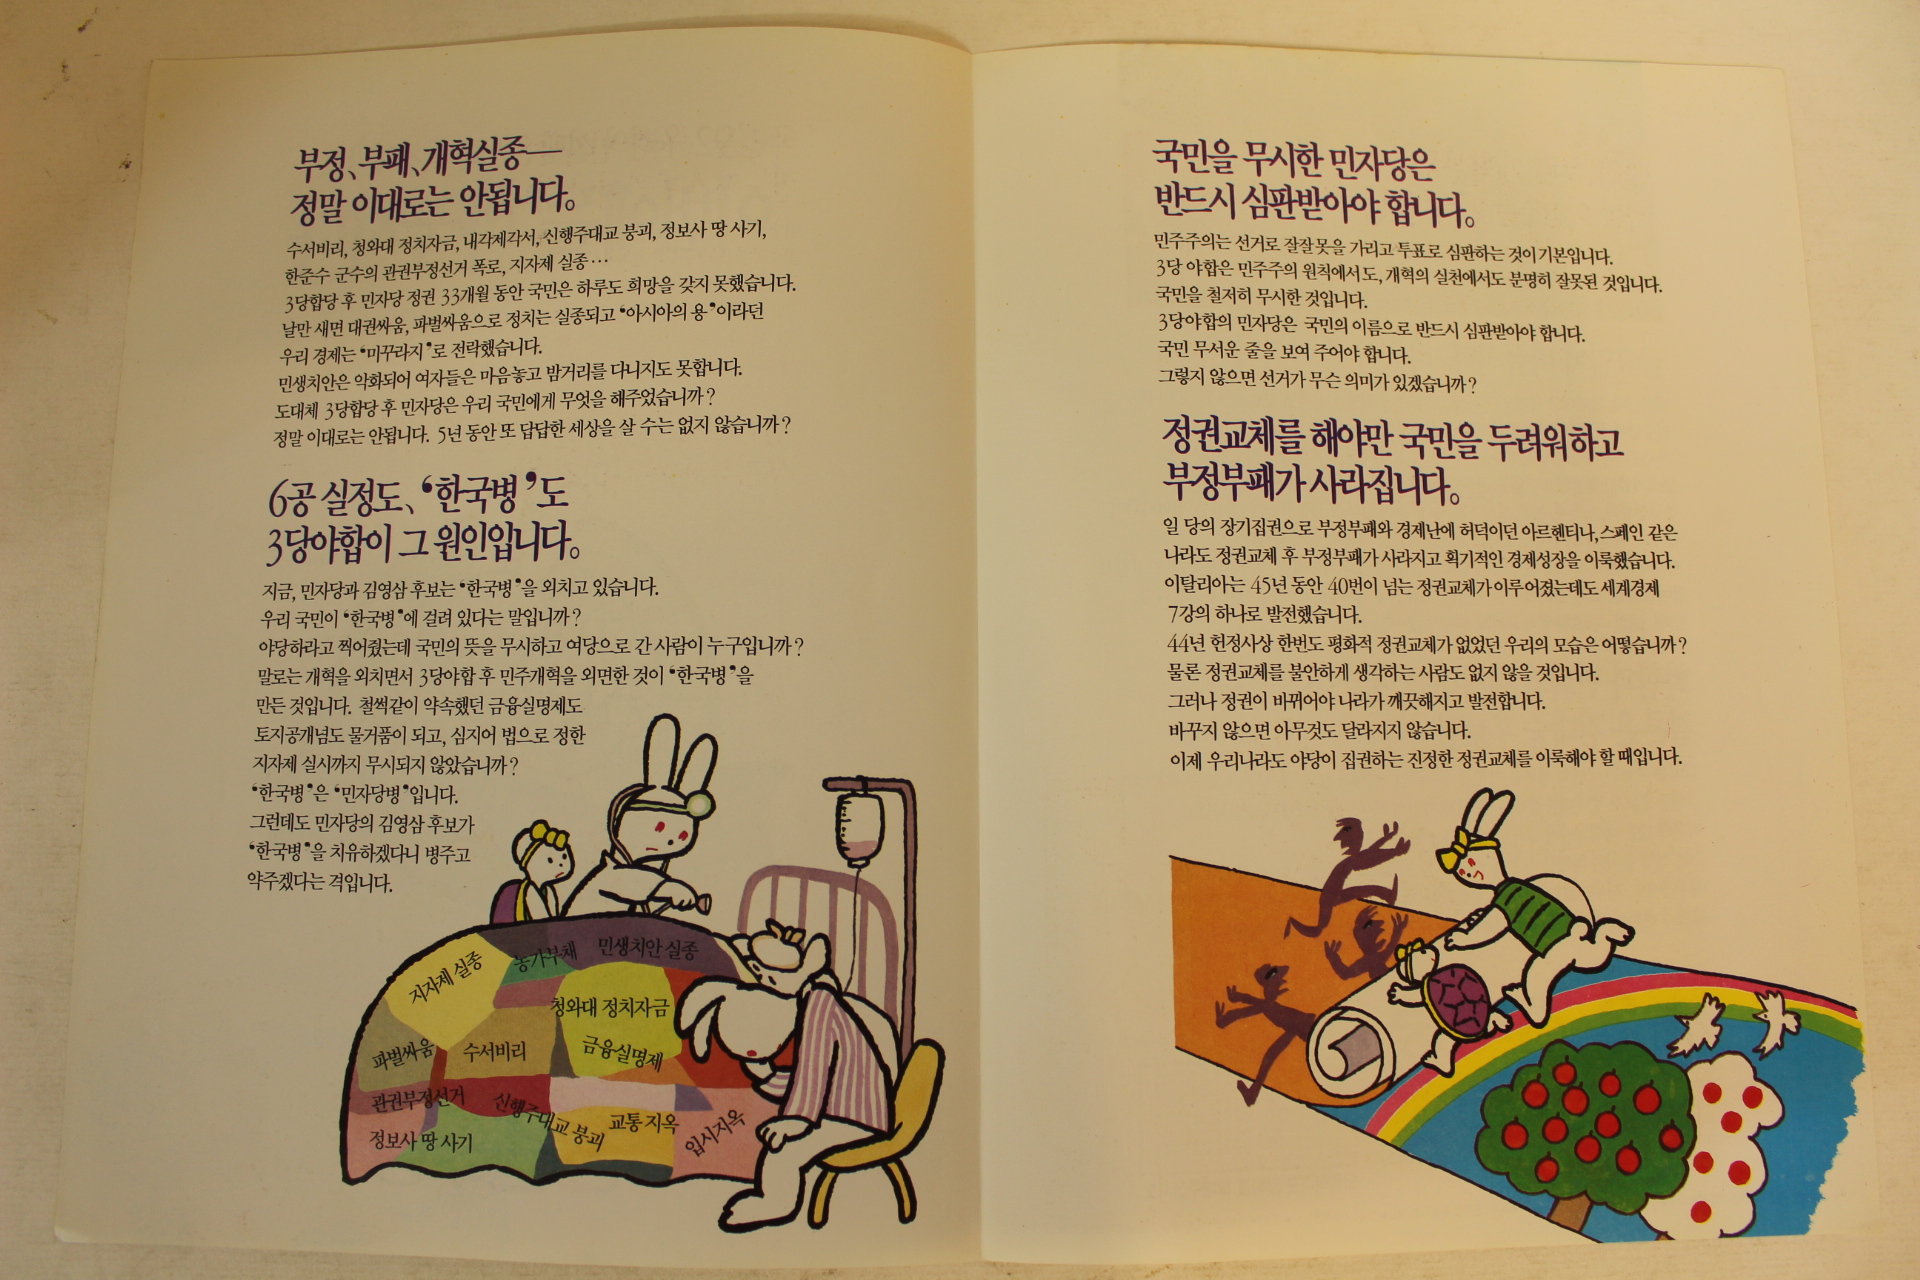 부정、부패、개혁실종—
정말 이대로는 안됩니다。
수서비리, 청와대 정치자금, 내각제각서, 신행주대교 붕괴, 정보사 땅 사기,
한준수 군수의 관권부정선거 폭로, 지자제 실종…
3당합당 후 민자당 정권 33개월 동안 국민은 하루도 희망을 갖지 못했습니다.
날만 새면 대권싸움, 파벌싸움으로 정치는 실종되고 ‘아시아의 용’이라던
우리 경제는 ‘미꾸라지’로 전락했습니다.
민생치안은 악화되어 여자들은 마음놓고 밤거리를 다니지도 못합니다.
도대체 3당합당 후 민자당은 우리 국민에게 무엇을 해주었습니까?
정말 이대로는 안됩니다. 5년 동안 또 답답한 세상을 살 수는 없지 않습니까?
6공 실정도、‘한국병’도
3당야합이 그 원인입니다。
지금, 민자당과 김영삼 후보는 ‘한국병’을 외치고 있습니다.
우리 국민이 ‘한국병’에 걸려 있다는 말입니까?
야당하라고 찍어줬는데 국민의 뜻을 무시하고 여당으로 간 사람이 누구입니까?
말로는 개혁을 외치면서 3당야합 후 민주개혁을 외면한 것이 ‘한국병’을
만든 것입니다. 철썩같이 약속했던 금융실명제도
토지공개념도 물거품이 되고, 심지어 법으로 정한
지자제 실시까지 무시되지 않았습니까?
‘한국병’은 ‘민자당병’입니다.
그런데도 민자당의 김영삼 후보가
‘한국병’을 치유하겠다니 병주고
약주겠다는 격입니다.
지자제 실종
농가부채
민생치안 실종
청와대 정치자금
파벌싸움
수서비리
금융실명제
관권부정선거
신행주대교 붕괴
교통지옥
입시지옥
정보사 땅 사기
국민을 무시한 민자당은
반드시 심판받아야 합니다。
민주주의는 선거로 잘잘못을 가리고 투표로 심판하는 것이 기본입니다.
3당 야합은 민주주의 원칙에서도, 개혁의 실천에서도 분명히 잘못된 것입니다.
국민을 철저히 무시한 것입니다.
3당야합의 민자당은 국민의 이름으로 반드시 심판받아야 합니다.
국민 무서운 줄을 보여 주어야 합니다.
그렇지 않으면 선거가 무슨 의미가 있겠습니까?
정권교체를 해야만 국민을 두려워하고
부정부패가 사라집니다。
일 당의 장기집권으로 부정부패와 경제난에 허덕이던 아르헨티나, 스페인 같은
나라도 정권교체 후 부정부패가 사라지고 획기적인 경제성장을 이룩했습니다.
이탈리아는 45년 동안 40번이 넘는 정권교체가 이루어졌는데도 세계경제
7강의 하나로 발전했습니다.
44년 헌정사상 한번도 평화적 정권교체가 없었던 우리의 모습은 어떻습니까?
물론 정권교체를 불안하게 생각하는 사람도 없지 않을 것입니다.
그러나 정권이 바뀌어야 나라가 깨끗해지고 발전합니다.
바꾸지 않으면 아무것도 달라지지 않습니다.
이제 우리나라도 야당이 집권하는 진정한 정권교체를 이룩해야 할 때입니다.